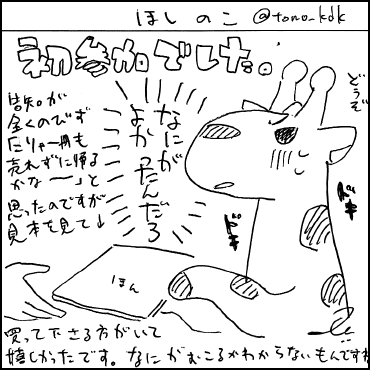 ほしのこ @tono_kdk
初参加でした。
どうぞ
なにが
よかったんだろ
告知が
全くのでず
こりゃ一冊も
売れずに帰る
かな〜」と
思ったのですが
見本を見て↓
ドキ
ドキ
ほん
買って下さる方がいて
嬉しかったです。なにがおこるかわからないもんですね